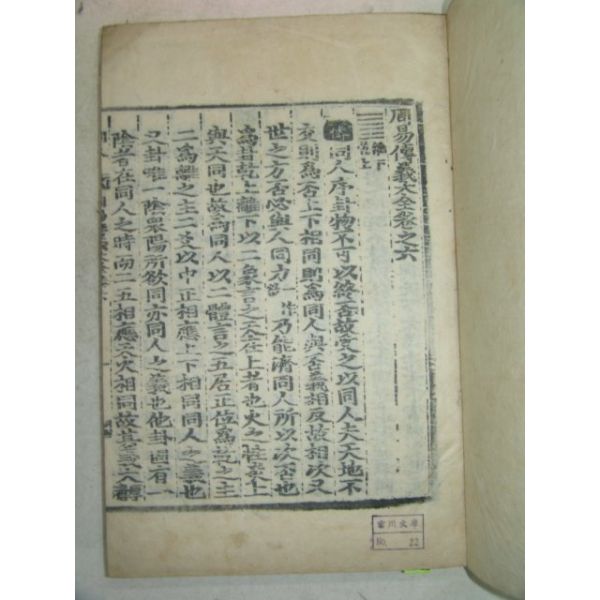 周易傳義大全卷之六
離下
乾上
傳 同人序卦物不可以終否故受之以同人夫天地不
交則爲否上下相同則爲同人與否義相反故相次又
世之方否必與人同力乃能濟同人所以次否也
爲卦乾上離下以二象言之天在上者也火之性炎上
與天同也故爲同人以二體言之五居正位爲乾之主
二爲離之主二爻以中正相應上下相同同人之義也
又卦唯一陰衆陽所欲同亦同人之義也他卦固有一
陰者在同人之時而二五相應天火相同故其義大
文庫
No. 22